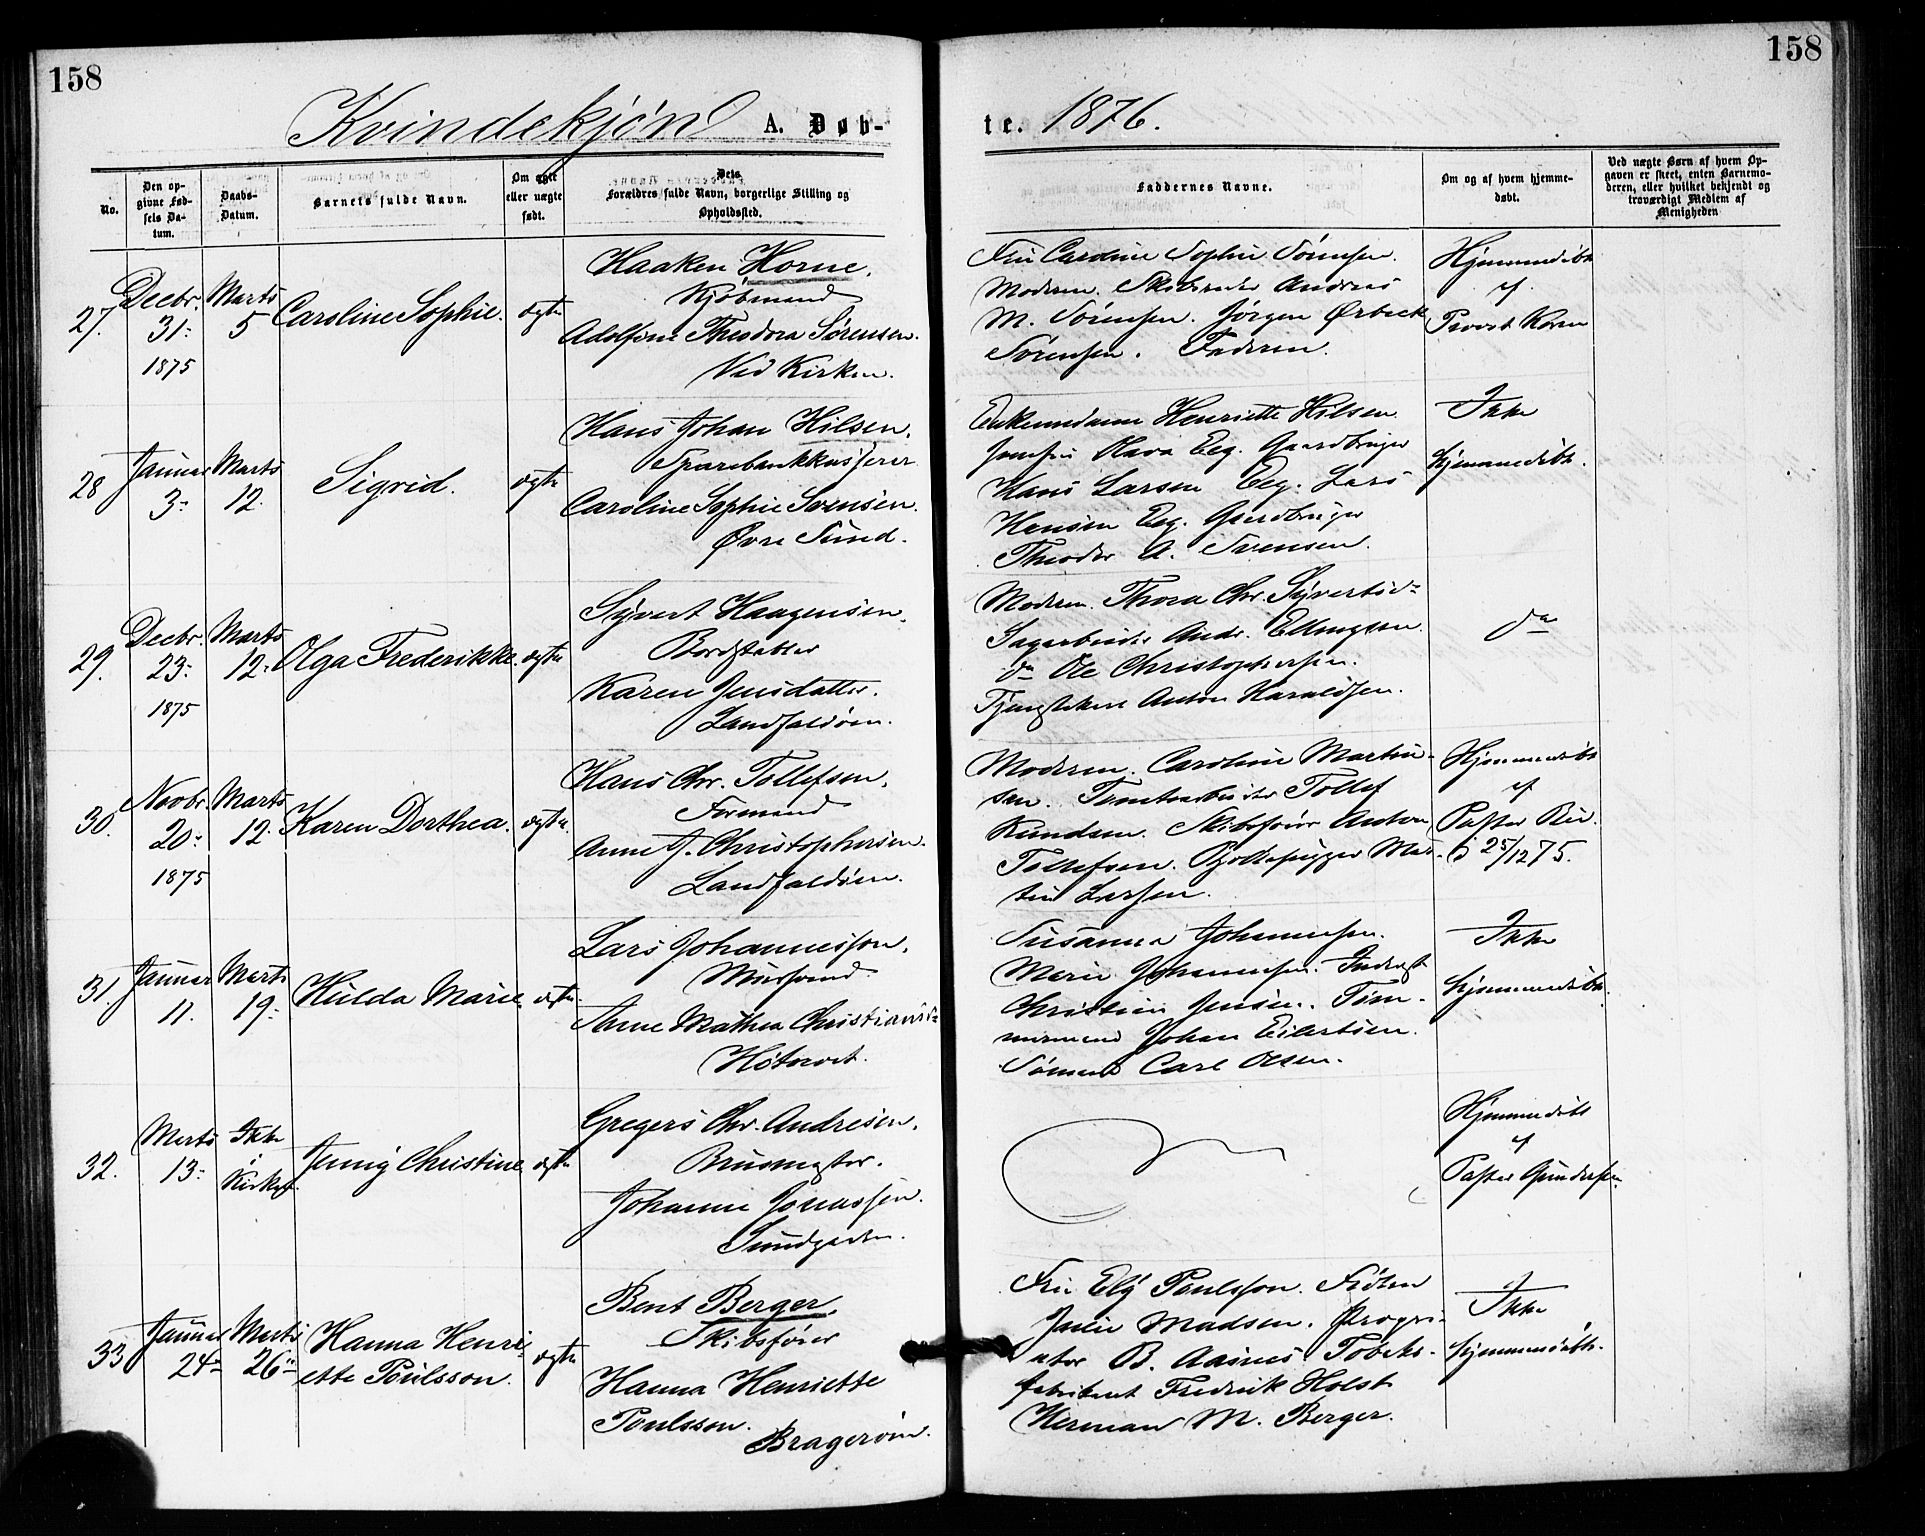 158
158
Kvindekjøn A. Døb-
te. 1876.
No.
Den op-
givne Fød-
sels Da-
tum.
Daabs-
Datum.
Barnets fulde Navn.
Om ægte
eller uægte
født.
Dets
Forældres fulde Navn, borgerlige Stilling og
Opholdssted.
Faddernes Navne.
Om og af hvem hjemme-
døbt.
Ved uægte Børn af hvem Op-
gaven er skeet, enten Barnemo-
deren, eller hvilket bekjendt og
troværdigt Medlem af
Menigheden
27.
Decbr.
31.
1875
Marts
5
Caroline Sophie.
ægte
Haaken Horne.
Kjøbmand
Adolfine Theodora Sørensen.
Ved Kirken.
Fru Caroline Sophie Sørensen.
Moderen. Skibsreder Andreas
M. Sørensen. Jørgen Ørbeck
Sørensen. Faderen.
Hjemmedøbt
af
Provst Koren
28
Januar
3.
Marts
12.
Sigrid.
ægte
Hans Johan Hilsen.
Sparebankkasserer
Caroline Sophie Sørensen.
Øvre Sund.
Enkemadame Henriette Hilsen
Jomfru Eeg. Gaardbruger
Hans Larsen Eeg. Lars
Hansen Eeg. Gaardbruger
Theodor A. Sørensen.
Ikke
hjemmedøbt.
29.
Decbr.
23.
1875
Marts
12.
Olga Frederikke.
ægte
Syvert Haagensen.
Bordstabler
Karen Jensdatter.
Landfaldøen.
Moderen. Thora Chr. Syvertsd.
Sagarbeider Andr. Ellingsen.
do Ole Christophersen.
Tjenestekarl Anton Haraldsen.
do
30.
Novbr.
20.
1875
Marts
12.
Karen Dorthea.
ægte.
Hans Chr. Tollefsen.
Formand
Anne J. Christophersen.
Landfaldøen.
Moderen. Caroline Martin-
sen. Tomtearbeider Tollef
Knudsen. Skibsfører Anton
Tollefsen. Mar-
tin Larsen.
Hjemmedøbt
af
Pastor
d 25/12 75.
31.
Januar
11.
Marts
19.
Hulda Marie.
ægte.
Lars Johannesson.
Murmand
Anne Mathea Christiansd.
Høtorvet.
Susanna Johannesen.
Marie Johannesen.
Christian Jensen. Tøm-
mermand Johan Eilertsen.
Sømand Carl Olsen.
Ikke
hjemmedøbt.
32.
Marts
13.
Ikke
i
Kirken.
Jenny Christine
ægte
Gregers Chr. Andresen.
Brusmester.
Johanne Jonassen.
Sundgaden.
Hjemmedøbt
af
Pastor Gundersen
33
Januar
24.
Marts
26.
Hanna Henri-
ette Poulsson.
ægte
Bent Berger.
Skibsfører
Hanna Henriette
Poulsson.
Bragerøen.
Fru Elg Poulsson. Frøken
Julie Madsen. Propri-
etær B. Aasnes. Tobaks-
fabrikant Fredrik Holst
Herman M. Berger.
Ikke
hjemmedøbt.